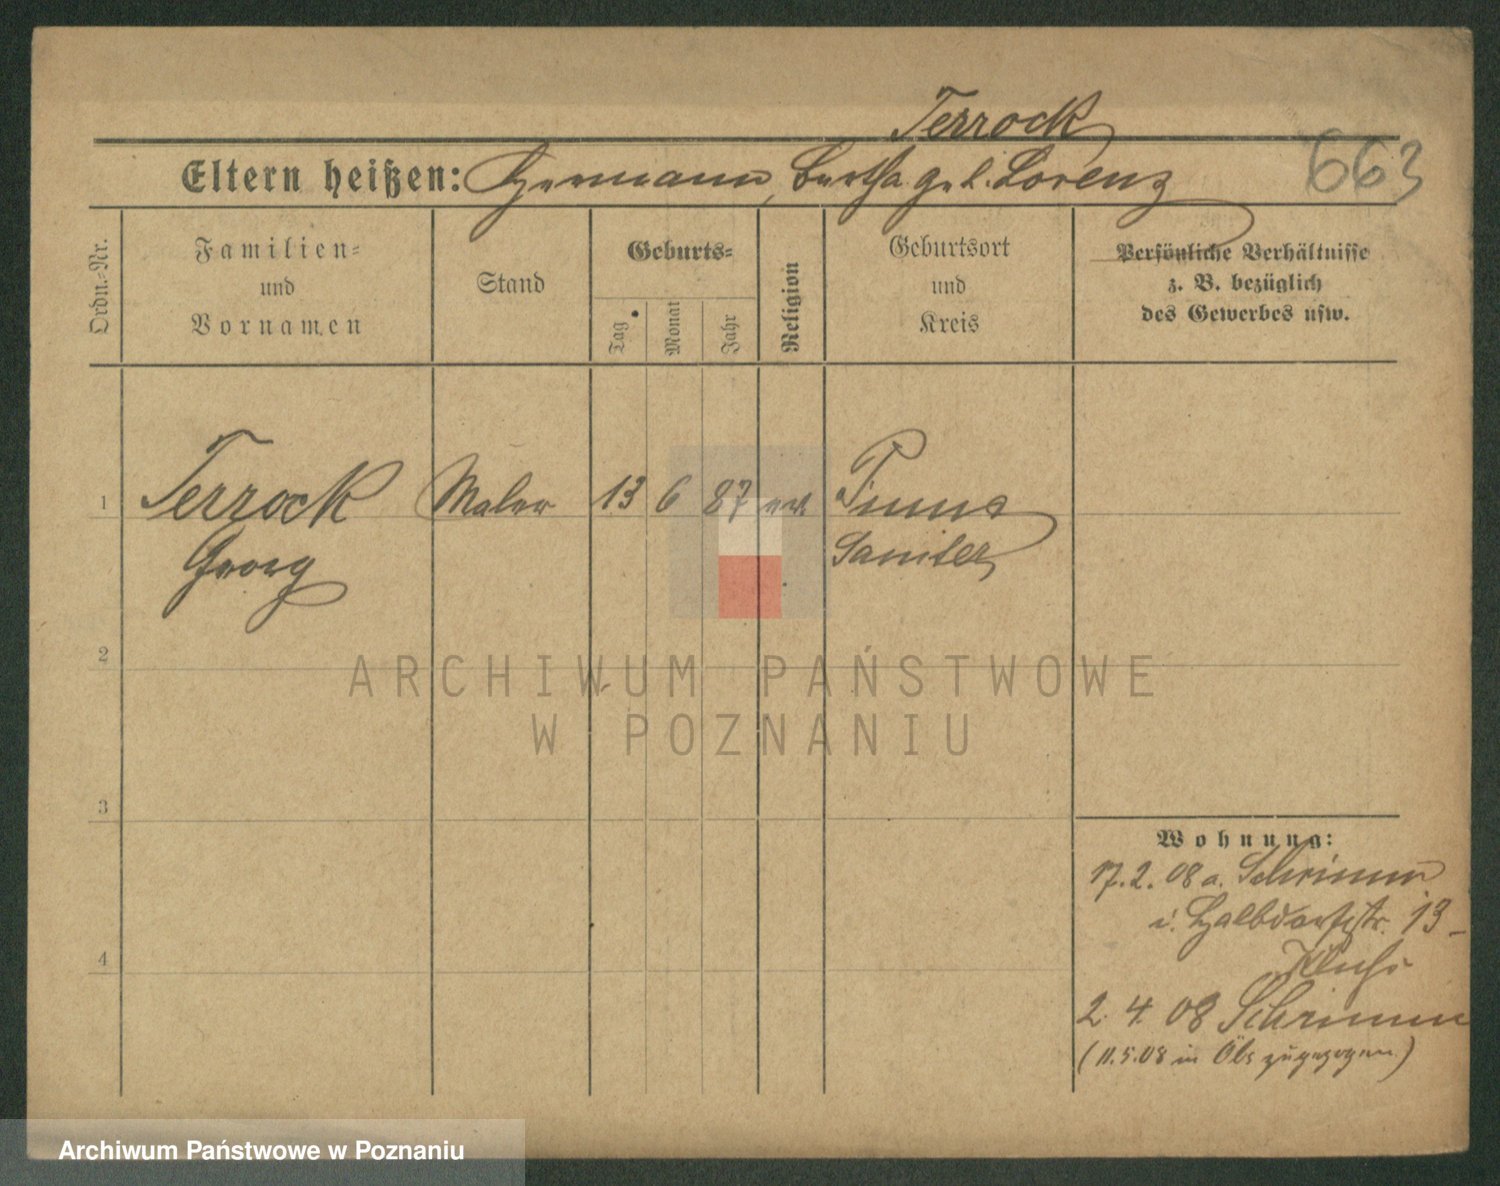 Terrock
Eltern heißen: Hermann, Bertha geb. Lorenz
663
Ordn.-Nr.
Familien-
und
Vornamen
Stand
Geburts-
Tag
Monat
Jahr
Religion
Geburtsort
und
Kreis
Persönliche Verhältnisse
z. B. bezüglich
des Gewerbes usw.
1 Terrock Maler 13 6 87 ev Pinne
Georg Samter
2
ARCHIWUM PAŃSTWOWE
W POZNANIU
3
Wohnung:
17.2.08 a. Schrimm
i. Halbdorfstr. 13
4
2. 4. 08 Schrimm
(11.5.08 in zugezogen.)
Archiwum Państwowe w Poznaniu